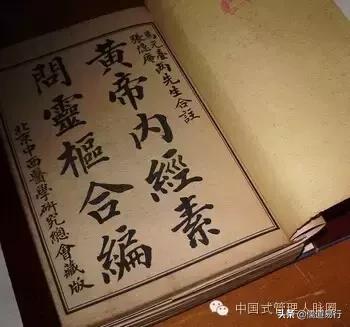 馬元臺
張隱庵
兩先生合註
黃帝內經素
問靈樞合編
北京中西醫學研究總會藏版
中国式管理人脉圈
头条 @儒道易行